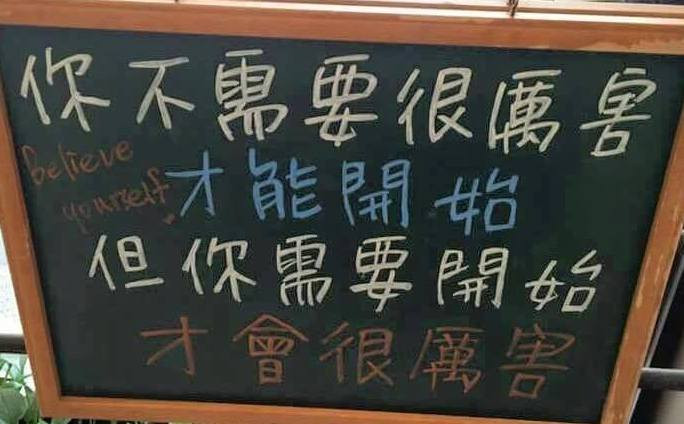 你不需要很厲害
believe
yourself
才能開始
但你需要開始
才會很厲害